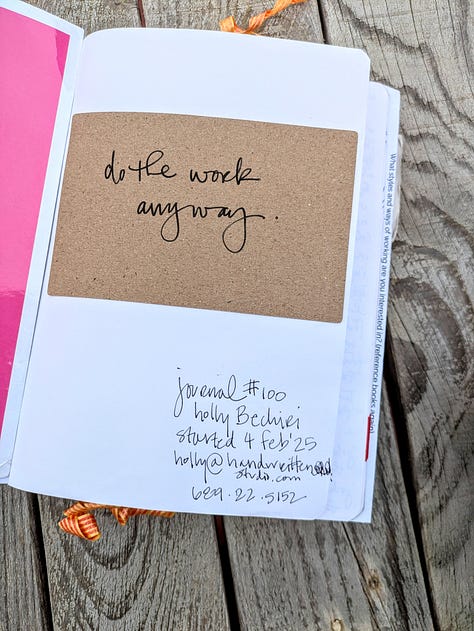 do the work
anyway.
journal #100
holly Bechiri
started 4 feb '25
holly@handwritten
studio.com
689.22.5152
What styles and ways of working are you interested in? (reference books again)